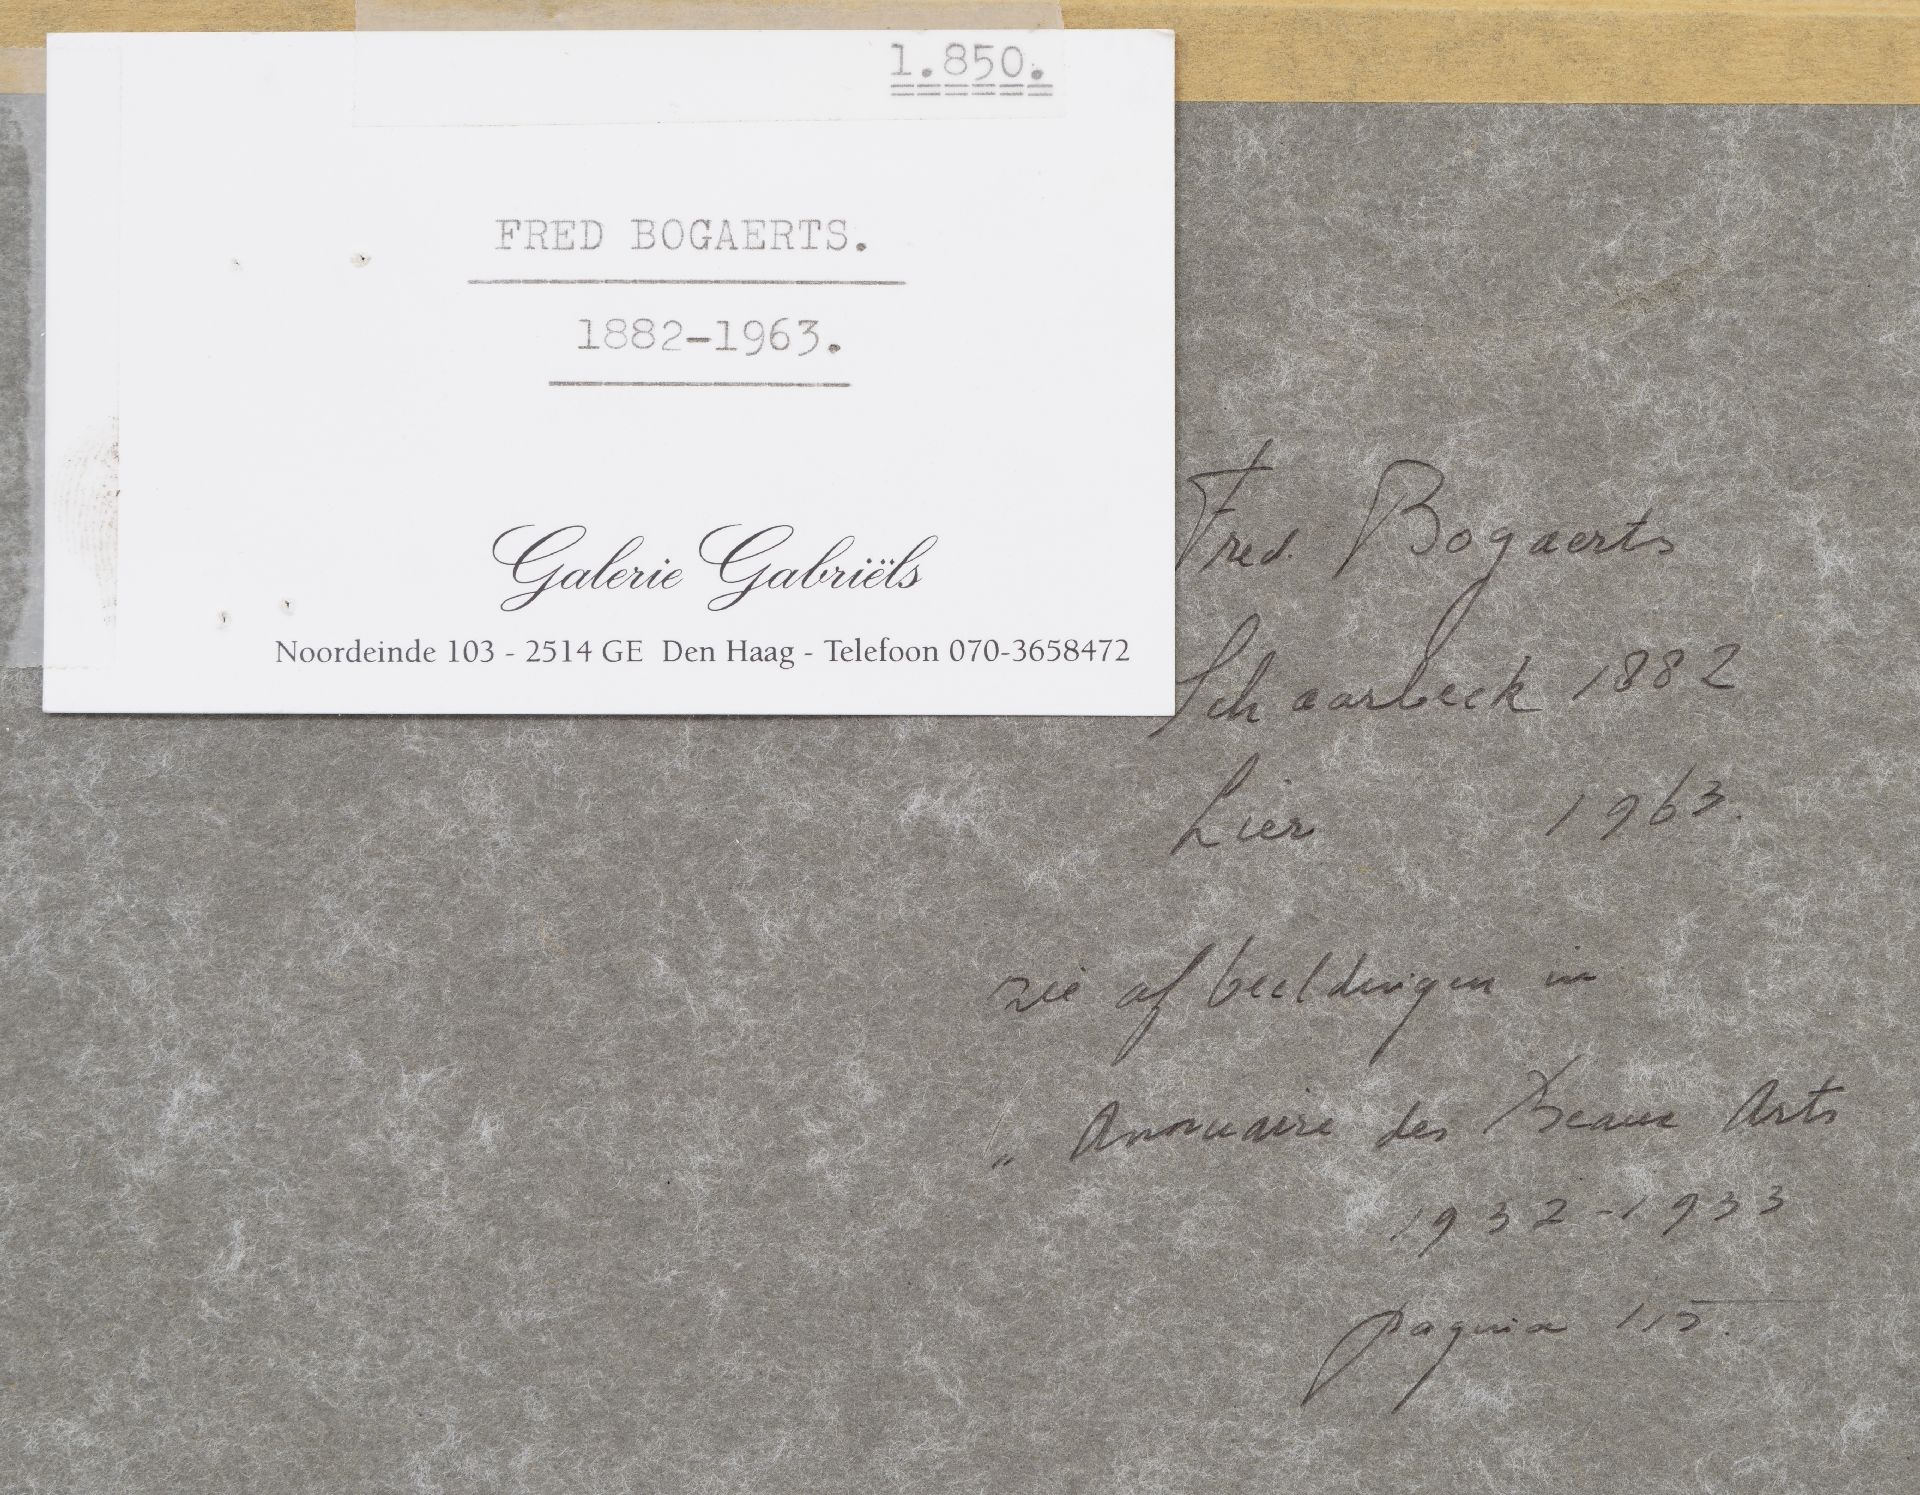 1.850.
FRED BOGAERTS.
1882-1963.
Galerie Gabriëls
Noordeinde 103 - 2514 GE Den Haag - Telefoon 070-3658472
Fred. Bogaerts
Schaarbeek 1882
Lier 1963.
zie afbeeldingen in
„ Annuaire des Beaux Arts
1932-1933
pagina 115.